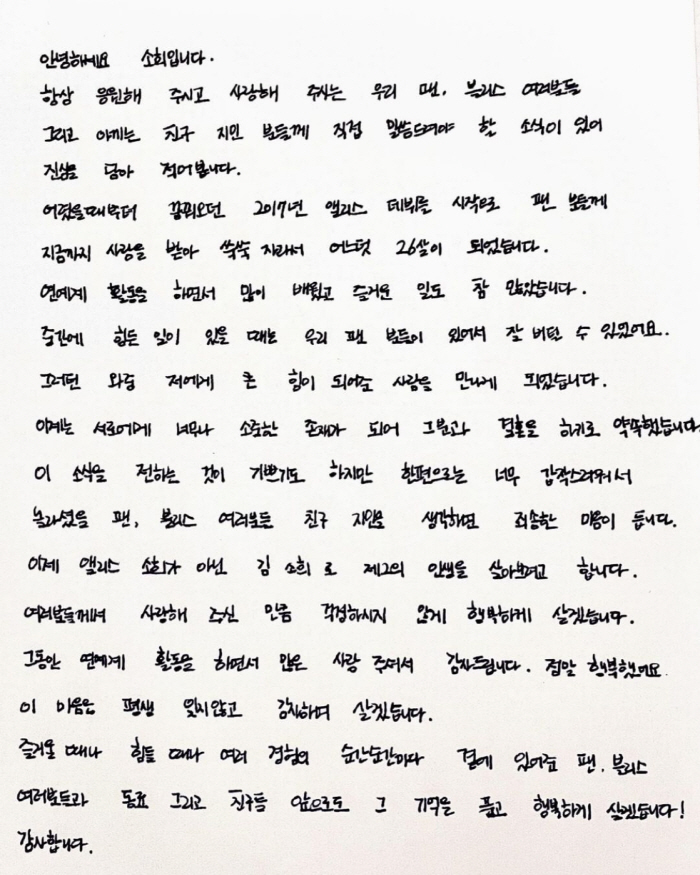 안녕하세요 소희입니다.
항상 응원해 주시고 사랑해 주시는 우리 팬, 블리스 여러분들
그리고 아끼는 친구 지인 분들께 직접 말씀드려야 할 소식이 있어
진심을 담아 적어봅니다.
어렸을때부터 꿈꿔오던 2017년 앨리스 데뷔를 시작으로 팬 분들께
지금까지 사랑을 받아 쑥쑥 자라서 어느덧 26살이 되었습니다.
연예계 활동을 하면서 많이 배웠고 즐거운 일도 참 많았습니다.
중간에 힘든 일이 있을 때는 우리 팬 분들이 있어서 잘 버틸 수 있었어요.
그러던 와중 저에게 큰 힘이 되어준 사람을 만나게 되었습니다.
이제는 서로에게 너무나 소중한 존재가 되어 그분과 결혼을 하기로 약속했습니다
이 소식을 전하는 것이 기쁘기도 하지만 한편으로는 너무 갑작스러워서
놀라셨을 팬, 블리스 여러분들 친구 지인을 생각하면 죄송한 마음이 듭니다.
이제 앨리스 소희가 아닌 김 소희 로 제2의 인생을 살아보려고 합니다.
여러분들께서 사랑해 주신 만큼 걱정하시지 않게 행복하게 살겠습니다.
그동안 연예계 활동을 하면서 많은 사랑 주셔서 감사드립니다. 정말 행복했어요
이 마음은 평생 잊지않고 감사하며 살겠습니다.
즐거울 때나 힘들 때나 여러 경험의 순간순간마다 곁에 있어준 팬, 블리스
여러분들과 동료 그리고 친구들 앞으로도 그 기억을 품고 행복하게 살겠습니다!
감사합니다.